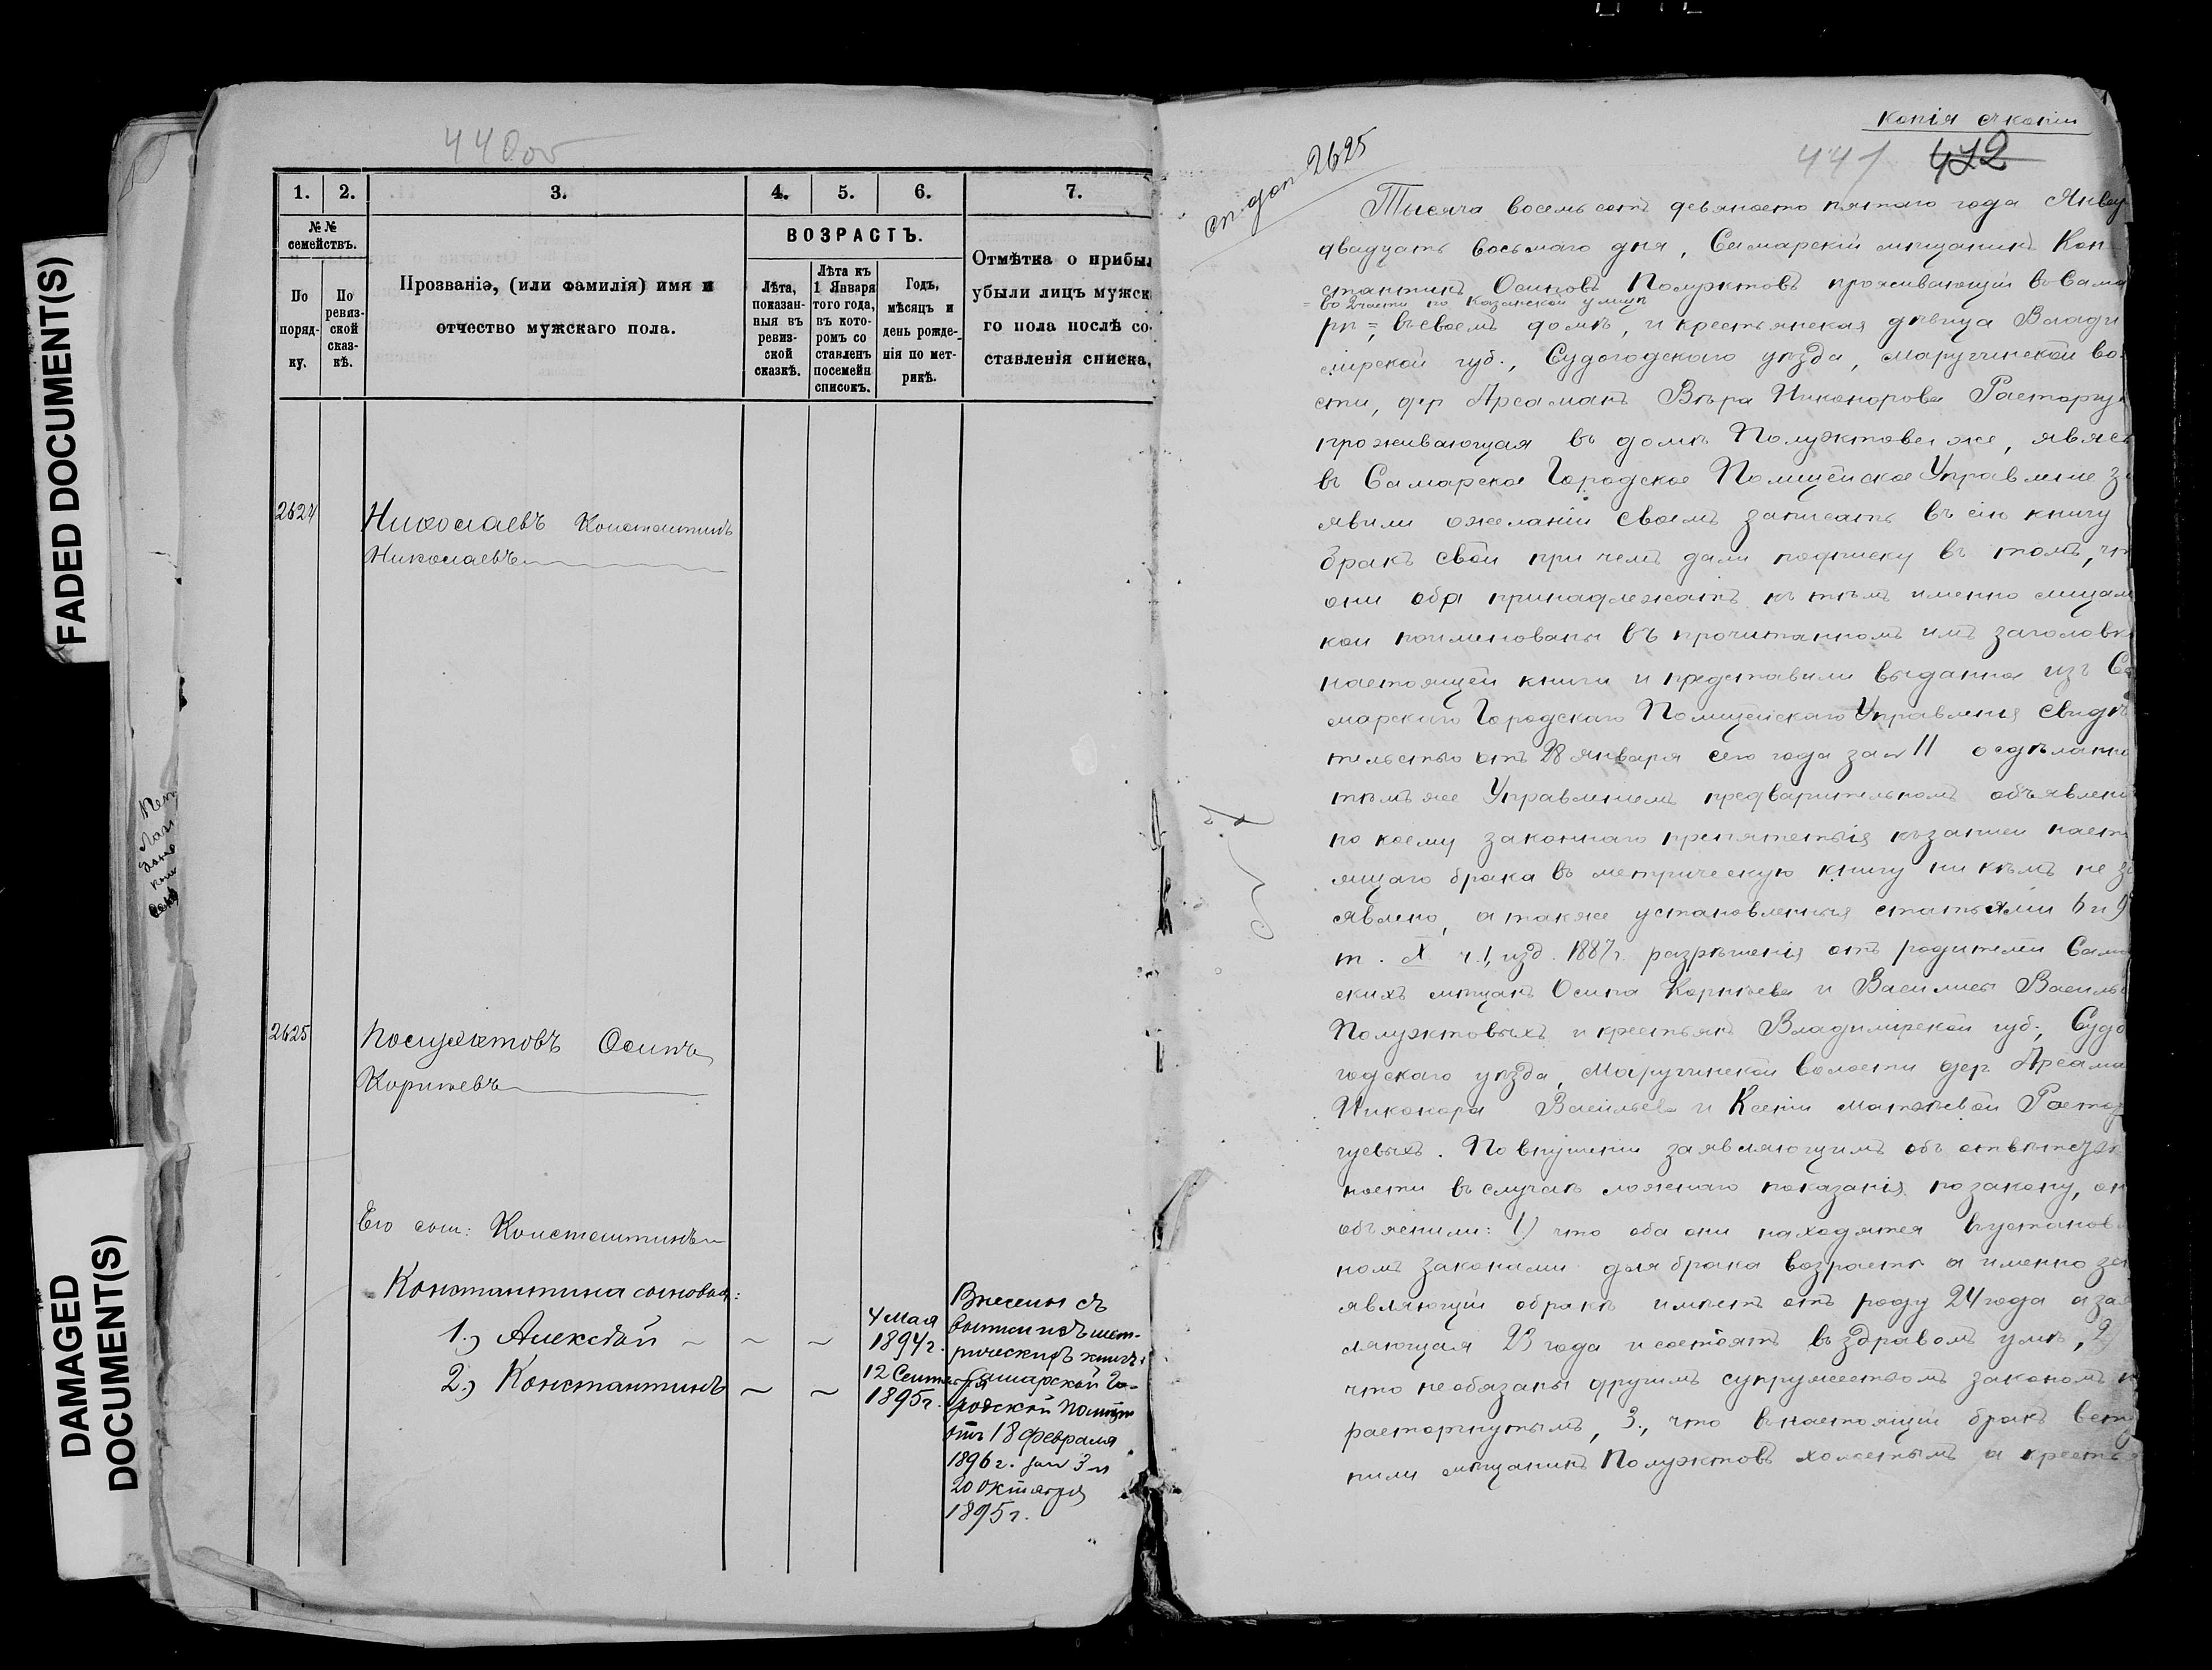 FADED DOCUMENT(S)
DAMAGED
DOCUMENT(S)
440об
1. 2. 3. 4. 5. 6. 7.
№№
семействъ.
По
поряд-
ку.
По
ревиз-
ской
сказ-
кѣ.
Прозваніе, (или фамилія) имя и
отчество мужскаго пола.
ВОЗРАСТЪ.
Лѣта,
показан-
ныя въ
ревиз-
ской
сказкѣ.
Лѣта къ
1 Января
того года,
въ кото-
ромъ со
ставленъ
посемейн
списокъ.
Годъ,
мѣсяцъ и
день рожде-
нія по мет-
рикѣ.
Отмѣтка о прибы
убыли лицъ мужск
го пола послѣ со-
ставленія списка.
2624 Николаевъ Константинъ
Николаевъ
2625 Полуэктовъ Осипъ
Корнѣевъ
Его сын: Константинъ
Константина сыновья:
1.) Алексѣй ~ ~ ~ 4 Мая
1894 г.
2.) Константинъ ~ ~ 12 Сентября
1895 г.
Внесены съ
выписи изъ мет-
рическихъ книгъ
Самарской Го-
родской Полиціи
отъ 18 февраля
1896 г. за № 3 и
20 октября
1895 г.
копія съ копіи
441 442
сп. доп 2625
Тысяча восемьсотъ девяносто пятаго года Янва
двадцать восьмаго дня, Самарскій мѣщанинъ Кон-
стантинъ Осиповъ Полуэктовъ проживающій въ Сама
= во 2 части по Казанской улицѣ
рѣ = въ своемъ домѣ, и крестьянская дѣвица Влади
мірской губ., Судогодскаго уѣзда, Маругинской во-
сти, дер Арсамакъ Вѣра Никонорова Расторгу
проживающая въ домѣ Полуэктова же, явяс
въ Самарское Городское Полицейское Управленіе за
явили о желаніи своемъ записать въ сію книгу
бракъ свой при чемъ дали подписку въ томъ, чт
они оба принадлежатъ къ тѣмъ именно лицам
кои поименованы въ прочитанномъ имъ заголовк
настоящей книги и представили выданное изъ Са
марскаго Городскаго Полицейскаго Управленія свидѣ
тельство отъ 28 января сего года за № 11 о сдѣланно
тѣмъ же Управленіемъ предварительномъ объявлені
по коему законнаго препятствія къ записи наст
ящаго брака въ метрическую книгу ни кѣмъ не за
явлено, а также установленныя статьями 6 и 9
т. X ч. 1, изд. 1887 г. разрѣшенія отъ родителей Сама
скихъ мѣщанъ Осипа Корнѣева и Василисы Василь
Полуэктовыхъ и крестьянъ Владимірской губ., Судо
годскаго уѣзда, Маругинской волости дер. Арсама
Никонора Васильева и Ксеніи Матвѣевой Растор
гуевыхъ. По внушеніи заявляющимъ объ отвѣтств
ности въ случаѣ ложнаго показанія по закону, он
объяснили: 1) что оба они находятся въ установл
номъ законами для брака возрастѣ а именно за
являющій о бракѣ имѣетъ отъ роду 24 года а зая
ляющая 23 года и состоятъ въ здравомъ умѣ, 2)
что не обязаны другимъ супружествомъ закономъ н
расторгнутымъ, 3., что въ настоящій бракъ всту
пили мѣщанинъ Полуэктовъ холостымъ а кресть